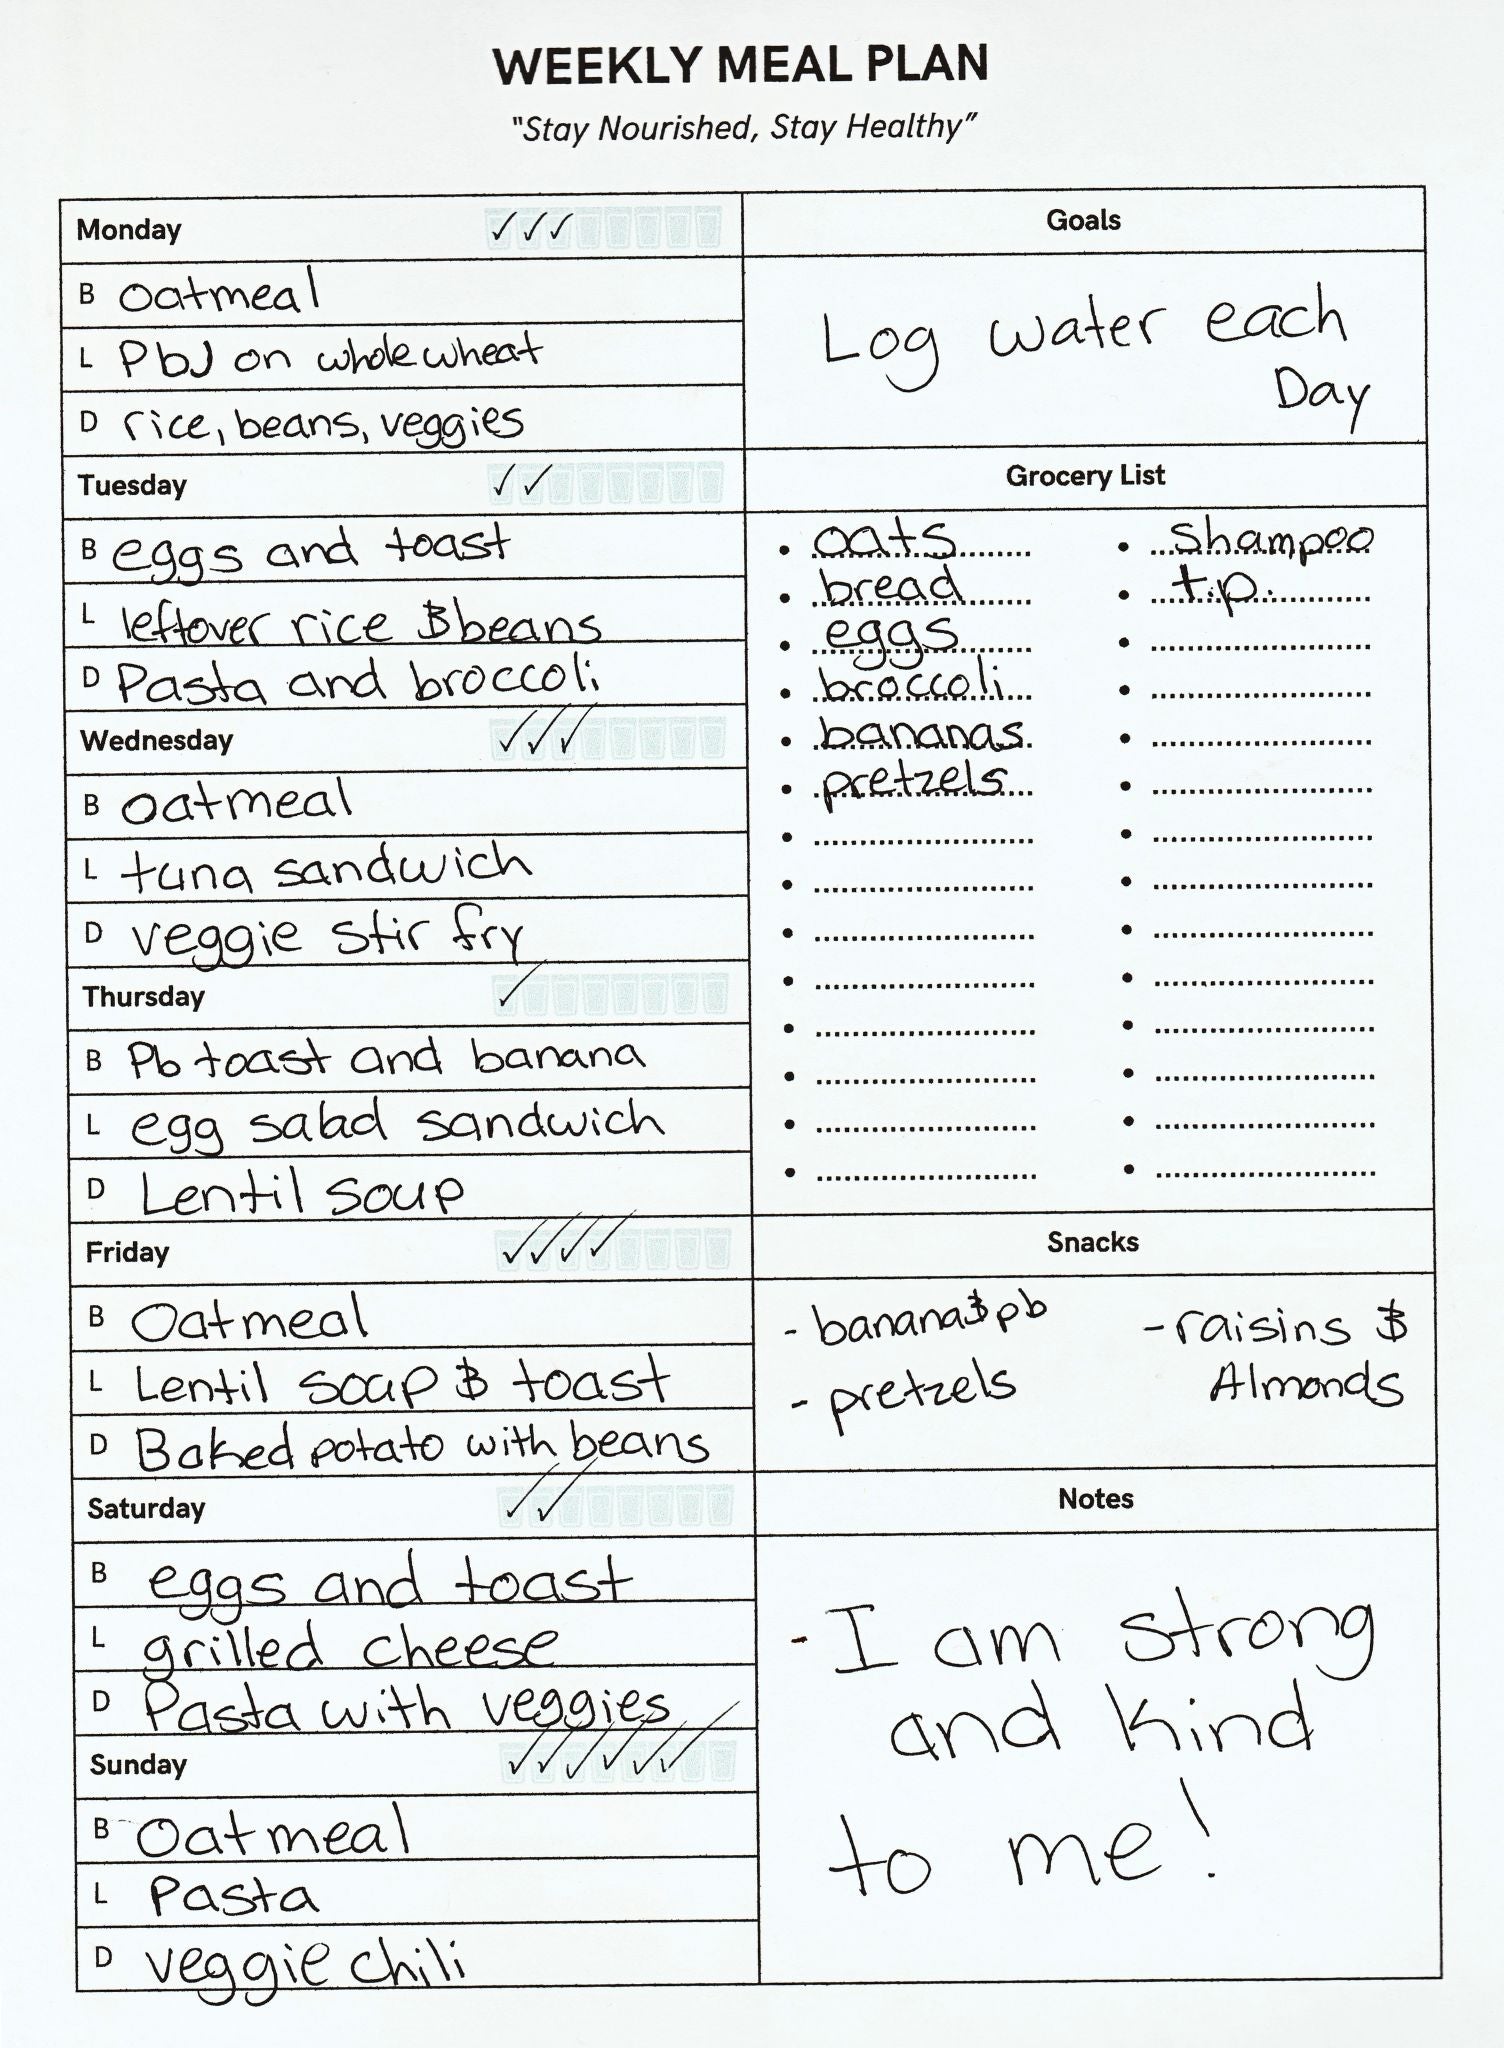 WEEKLY MEAL PLAN
"Stay Nourished, Stay Healthy"
Monday
B oatmeal
L PbJ on whole wheat
D rice, beans, veggies
Tuesday
B eggs and toast
L leftover rice & beans
D Pasta and broccoli
Wednesday
B oatmeal
L tuna sandwich
D veggie stir fry
Thursday
B Pb toast and banana
L egg salad sandwich
D Lentil soup
Friday
B Oatmeal
L Lentil soup & toast
D Baked potato with beans
Saturday
B eggs and toast
L grilled cheese
D Pasta with veggies
Sunday
B Oatmeal
L Pasta
D veggie chili
Goals
Log water each
Day
Grocery List
• oats
• bread
• eggs
• broccoli
• bananas
• pretzels
• shampoo
• t.p.
Snacks
- banana & pb
- pretzels
- raisins &
Almonds
Notes
- I am strong
and kind
to me!